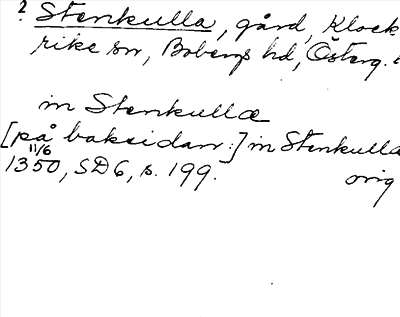 ? Stenkulla, gård, Klock
rike sn, Bobergs hd, Österg.
in Stenkullæ
[på baksidan:] in Stenkulla
11/6
1350, SD6, s. 199.
orig